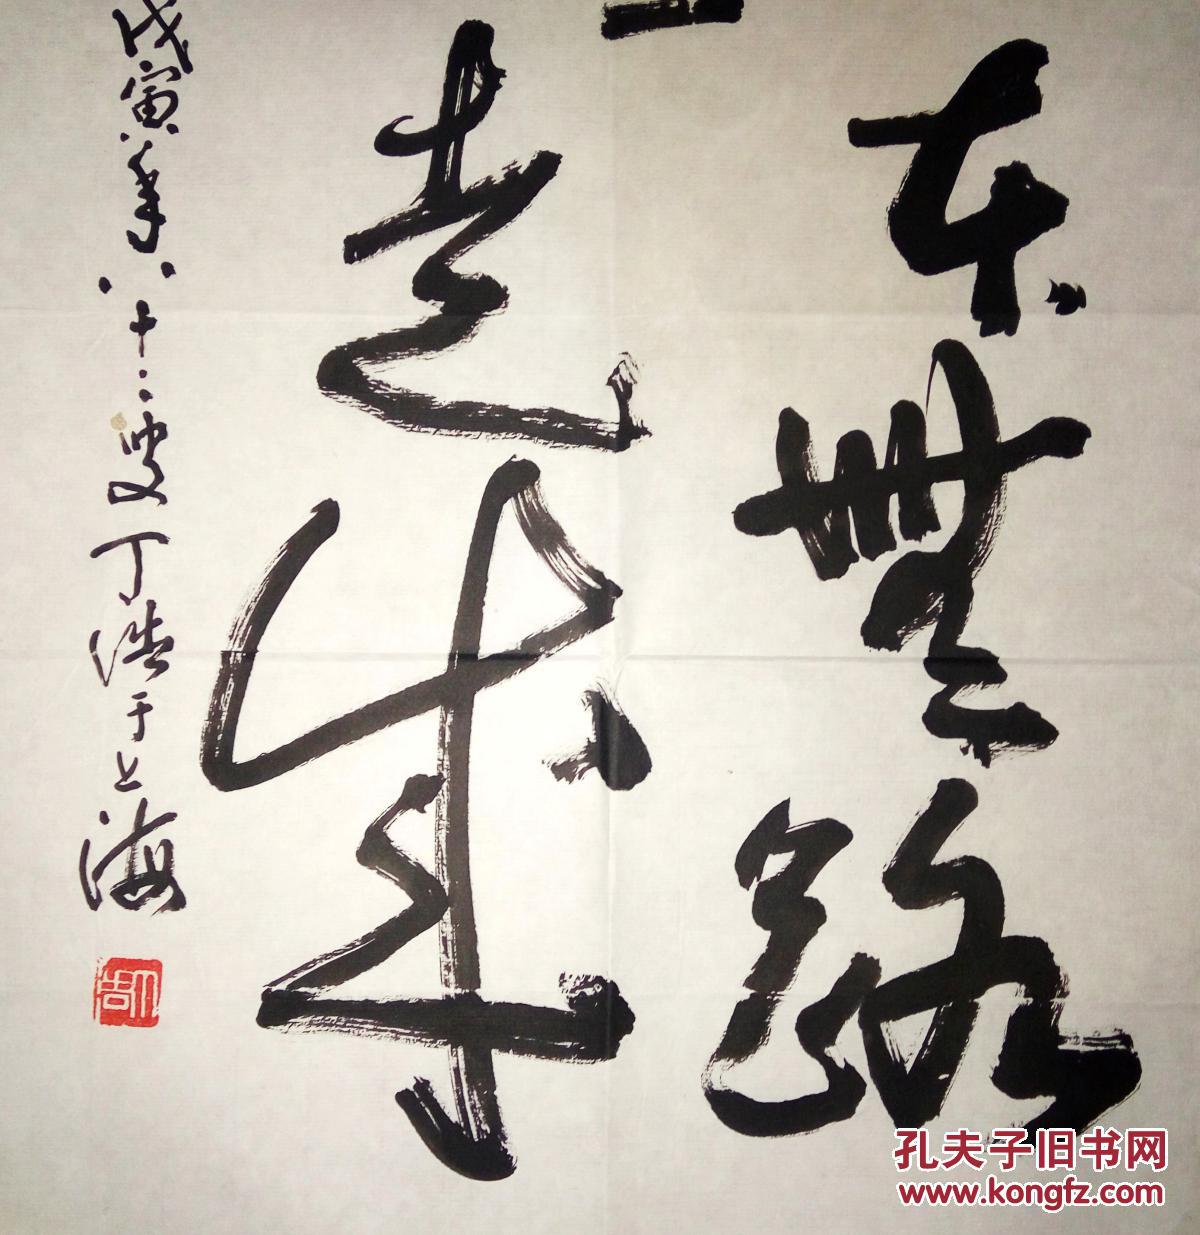 本無路
走
戊寅年八十二叟丁浩于上海
丁浩
孔夫子旧书网
www.kongfz.com